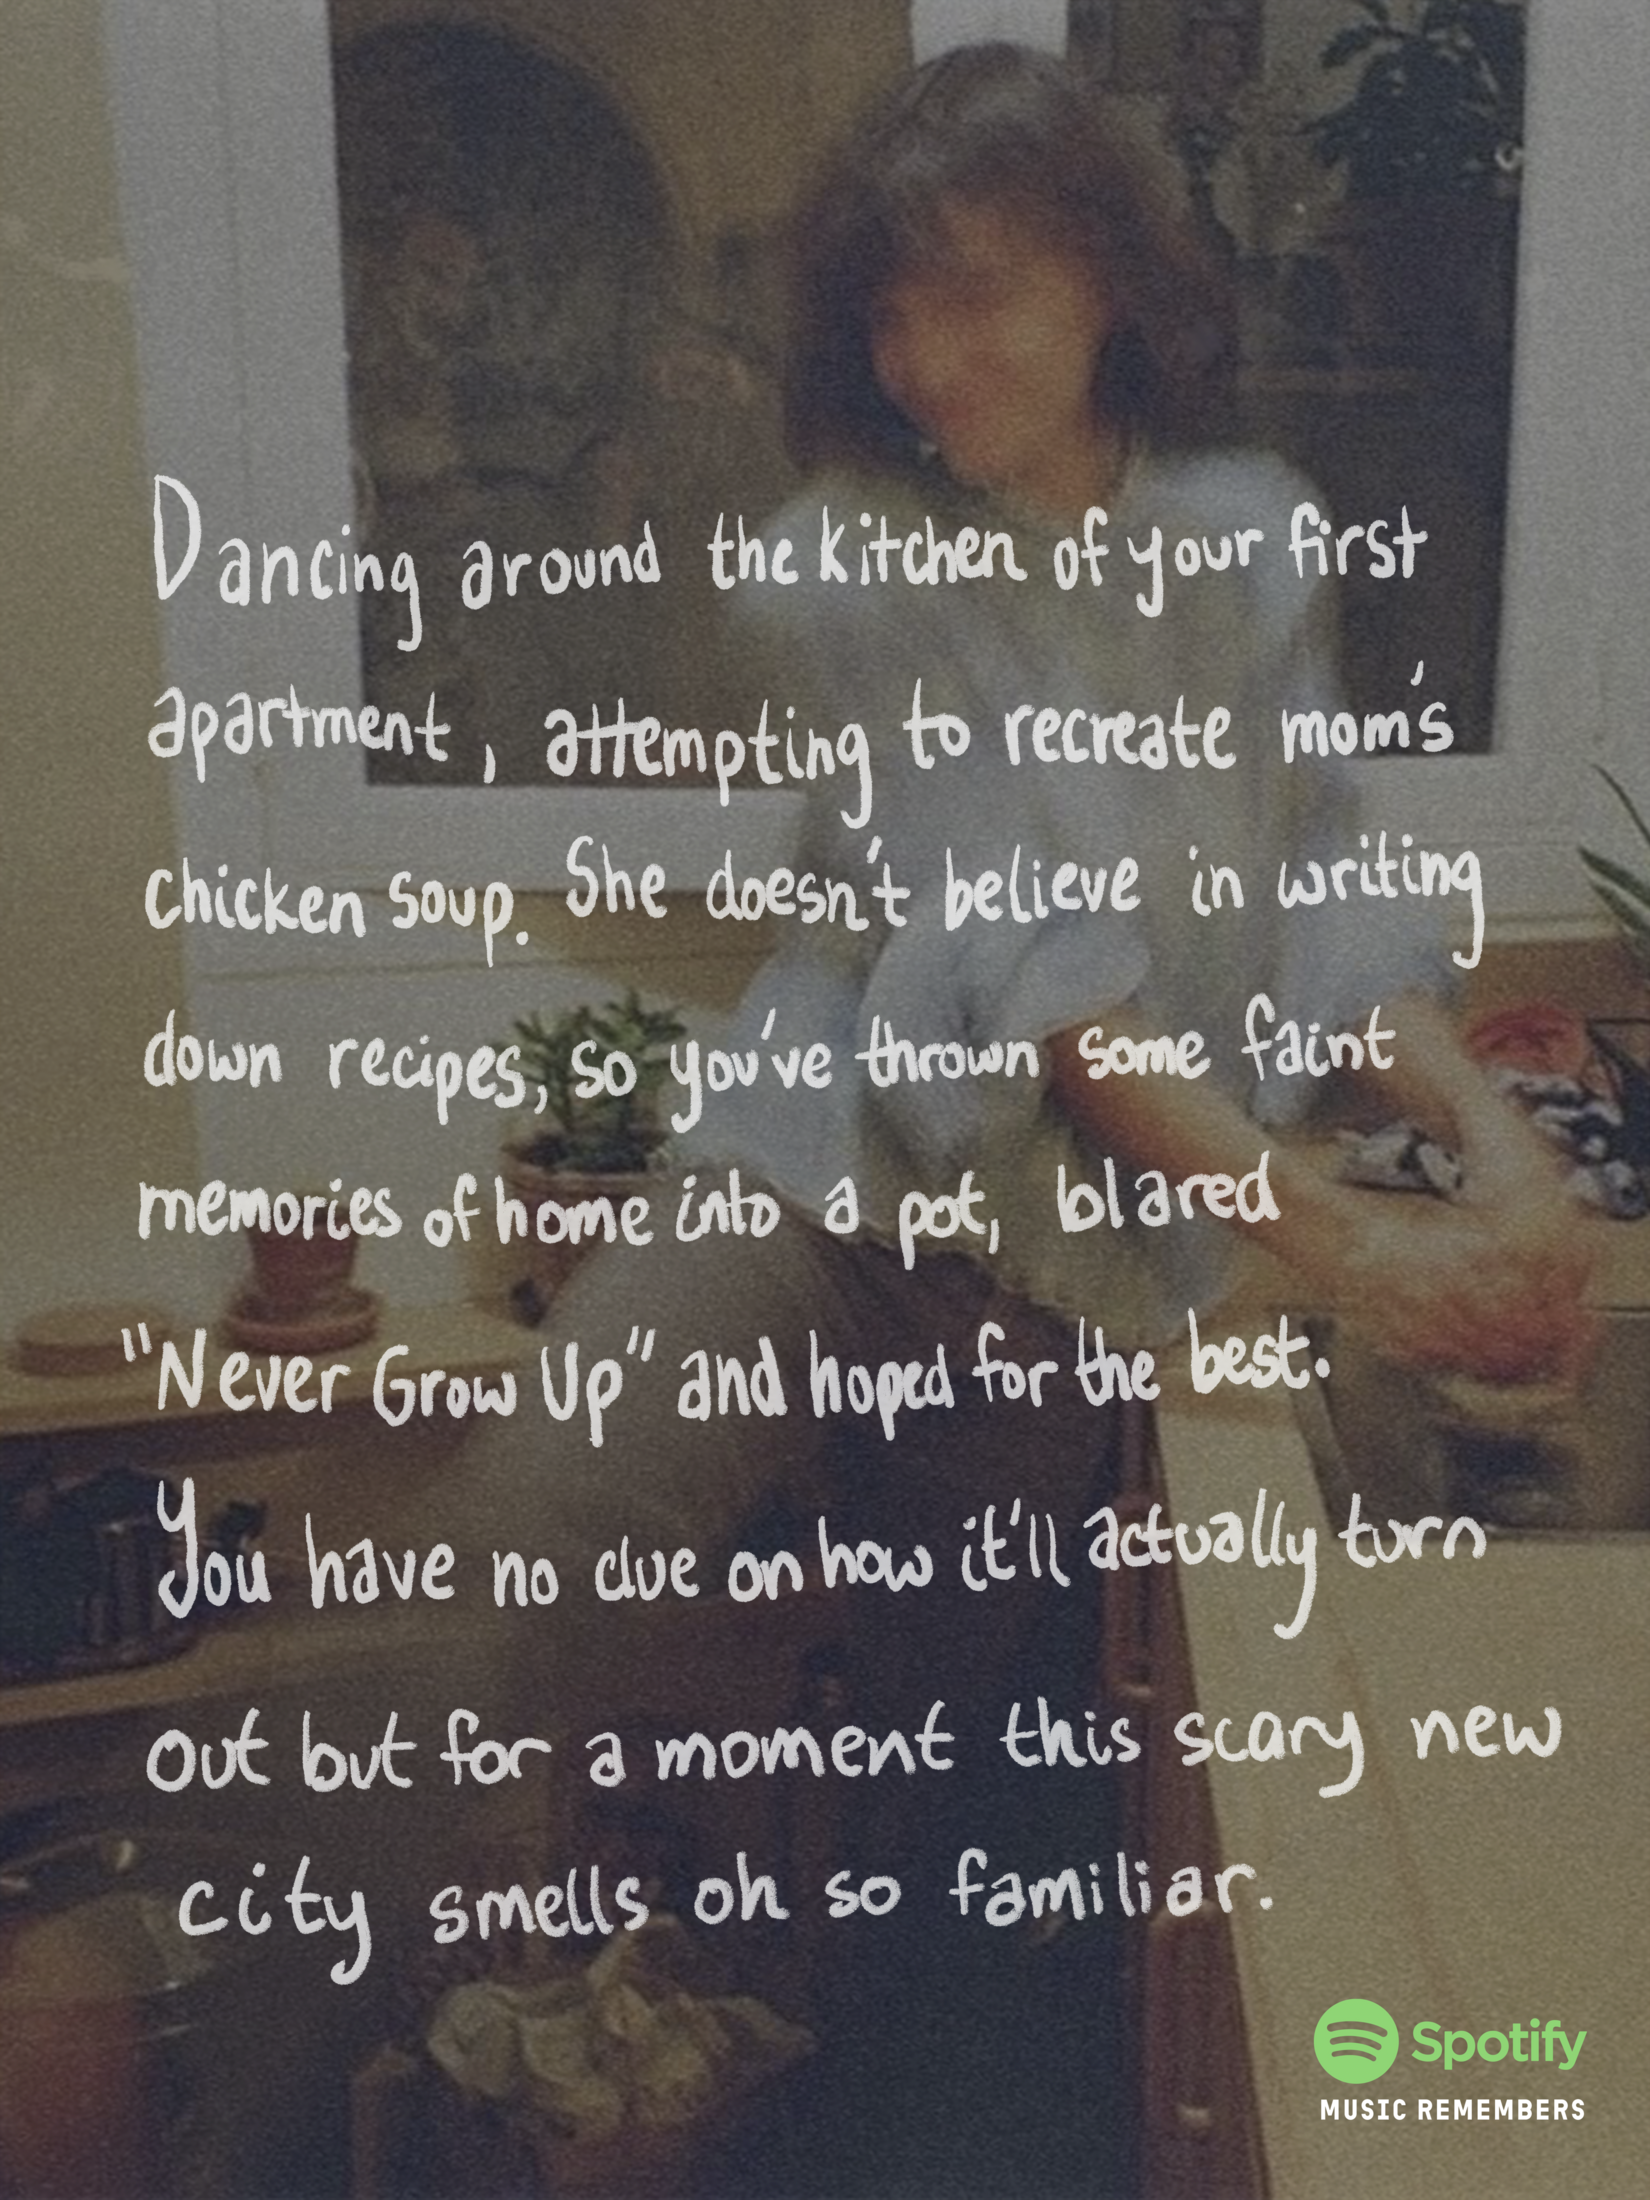 Dancing around the kitchen of your first
apartment, attempting to recreate mom's
chicken soup. She doesn't believe in writing
down recipes, so you've thrown some faint
memories of home into a pot, blared
"Never Grow Up" and hoped for the best.
You have no clue on how it'll actually turn
out but for a moment this scary new
city smells oh so familiar.
Spotify
MUSIC REMEMBERS